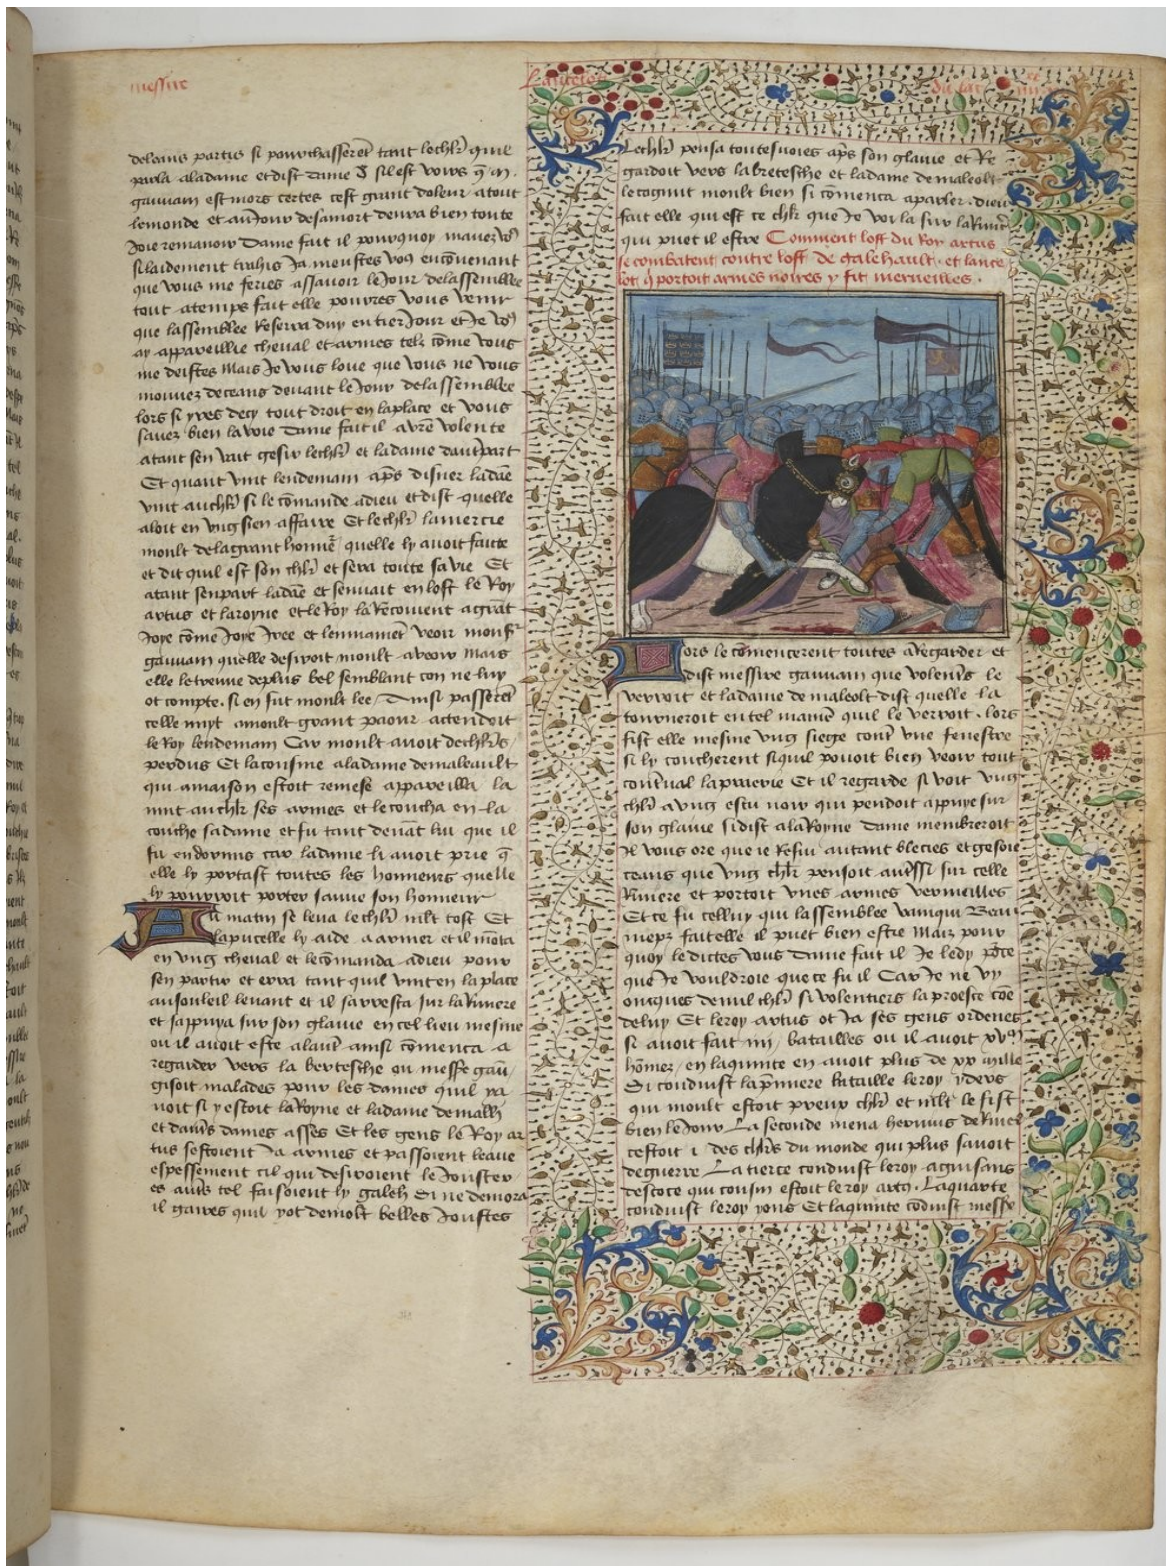 messire
Lancelot
du lac
deleans partis si pourchasseret tant lechlr quil
parla aladame et dist dame S sil est voirs q m.
gauuain est mors certes cest grant doleur atout
lemonde et au Jour desamort deura bien toute
Joie remanoir dame fait il pourquoy mauez vo9
silaidement trahis Ja meustes vo9 encouenant
que vous me feries assauoir le Jour delassemblee
tout atemps fait elle pouures vous venir
que lassemblee sera duy en tier Jour et Je vo9
ay appareillie cheual et armes telz come vous
me deistes Mais Je vous loue que vous ne vous
mouuez deceans deuant le Jour delassemblee
lors si yres decy tout droit en laplace et vous
sauez bien lavoie dame fait il a vre volente
atant sen vait gesir lechlr et ladame dautpart
Et quant vint lendemain aps disner ladae
vint auchlr si le comande adieu et dist quelle
aloit en vng sien affaire Et lechlr lamercie
moult delagrant honne quelle ly auoit faicte
et dit quil est son chlr et sera toute sa vie Et
atant senpart ladae et senuait en lost le Roy
artus et laroyne et le Roy la Recoiuent agrat
Joye come Joye Iree et lenmainet veoir monsr
gauuain quelle desiroit moult aveoir Mais
elle letreuue deplus bel semblant con ne luy
ot compte. si en fut moult lee. Ainsi passeret
celle nuyt amoult grant paour actendoit
le Roy lendemain Car moult auoit dechlrs
perdus Et lacousine aladame demaleault
qui amaison estoit remese appareilla la
nuit auchlr ses armes et lecoucha en la
couche sadame et fu tant deuat lui que il
fu endormis car ladame li auoit prie q
elle ly portast toutes les honneurs quelle
ly pourroit porter sauue son honneur
Au matin se leua lechlr mlt tost Et
lapucelle ly aide a armer et il mota
en vng cheual et lecomanda adieu pour
sen partir et erra tant quil vint en la place
ausouleil leuant et il sarresta sur lariuiere
et sappuya sur son glaiue en cel lieu mesme
ou il auoit este alautr ainsi comenca a
regarder vers la bertesche ou messe gau
gisoit malades pour les dames quil ya
uoit si y estoit laRoyne et ladame demalh
et dautrs dames asses Et les gens le Roy ar
tus sestoient Ja armes et passoient leaue
espessement cil qui desiroient le Jouster
et autrs tel faisoient ly galeh Si ne demora
il gaires quil yot demolt belles Joustes
Lechlr pensa toutesuoies aps son glaiue et Re
gardoit vers labretesche et ladame demaleolt
lecognut moult bien si comenca aparler. dieu
fait elle qui est ce chlr que Je voi la sur lariuie
qui puet il estre Comment lost du Roy artus
se combatent contre lost de galehault. et lance
lot q portoit armes noires y fit merueilles.
Lors le comencerent toutes aRegarder et
dist messire gauuain que volentrs le
verroit et ladame de maleolt dist quelle la
tourneroit en tel manie quil le verroit. lors
fist elle mesme vng siege contr vne fenestre
si ly coucherent si quil pouoit bien veoir tout
contual lapraerie Et il regarde si voit vng
chlr avng escu noir qui pendoit appuye sur
son glaiue si dist alaRoyne dame membreroit
Jl vous ore que ie Resiu autant blecies et gesoie
ceans que vng chlr pensoit aussi sur celle
Riuiere et portoit vnes armes vermeilles
Et ce fu celluy qui lassemblee vainqui Beau
niepz fait elle il puet bien estre Mais pour
quoy le dictes vous dame fait il Je ledy porce
que Je vouldroie que ce fu il Car Je ne vy
oncques de nul chlr si volentiers la proesce coe
deluy Et leroy artus ot Ja ses gens ordenes
si auoit fait iiij batailles ou il auoit xvm
homes, en laquinte en auoit plus de xx mille
Si conduist la pmiere bataille le roy ydeus
qui moult estoit preux chlr et mlt le fist
bien le Jour La seconde mena heruius deRiuel
cestoit i des chlrs du monde qui plus sauoit
deguerre La tierce conduist leroy aguisans
descoce qui cousin estoit le roy artus. Laquarte
conduist leroy yons Et laquinte coduist messe